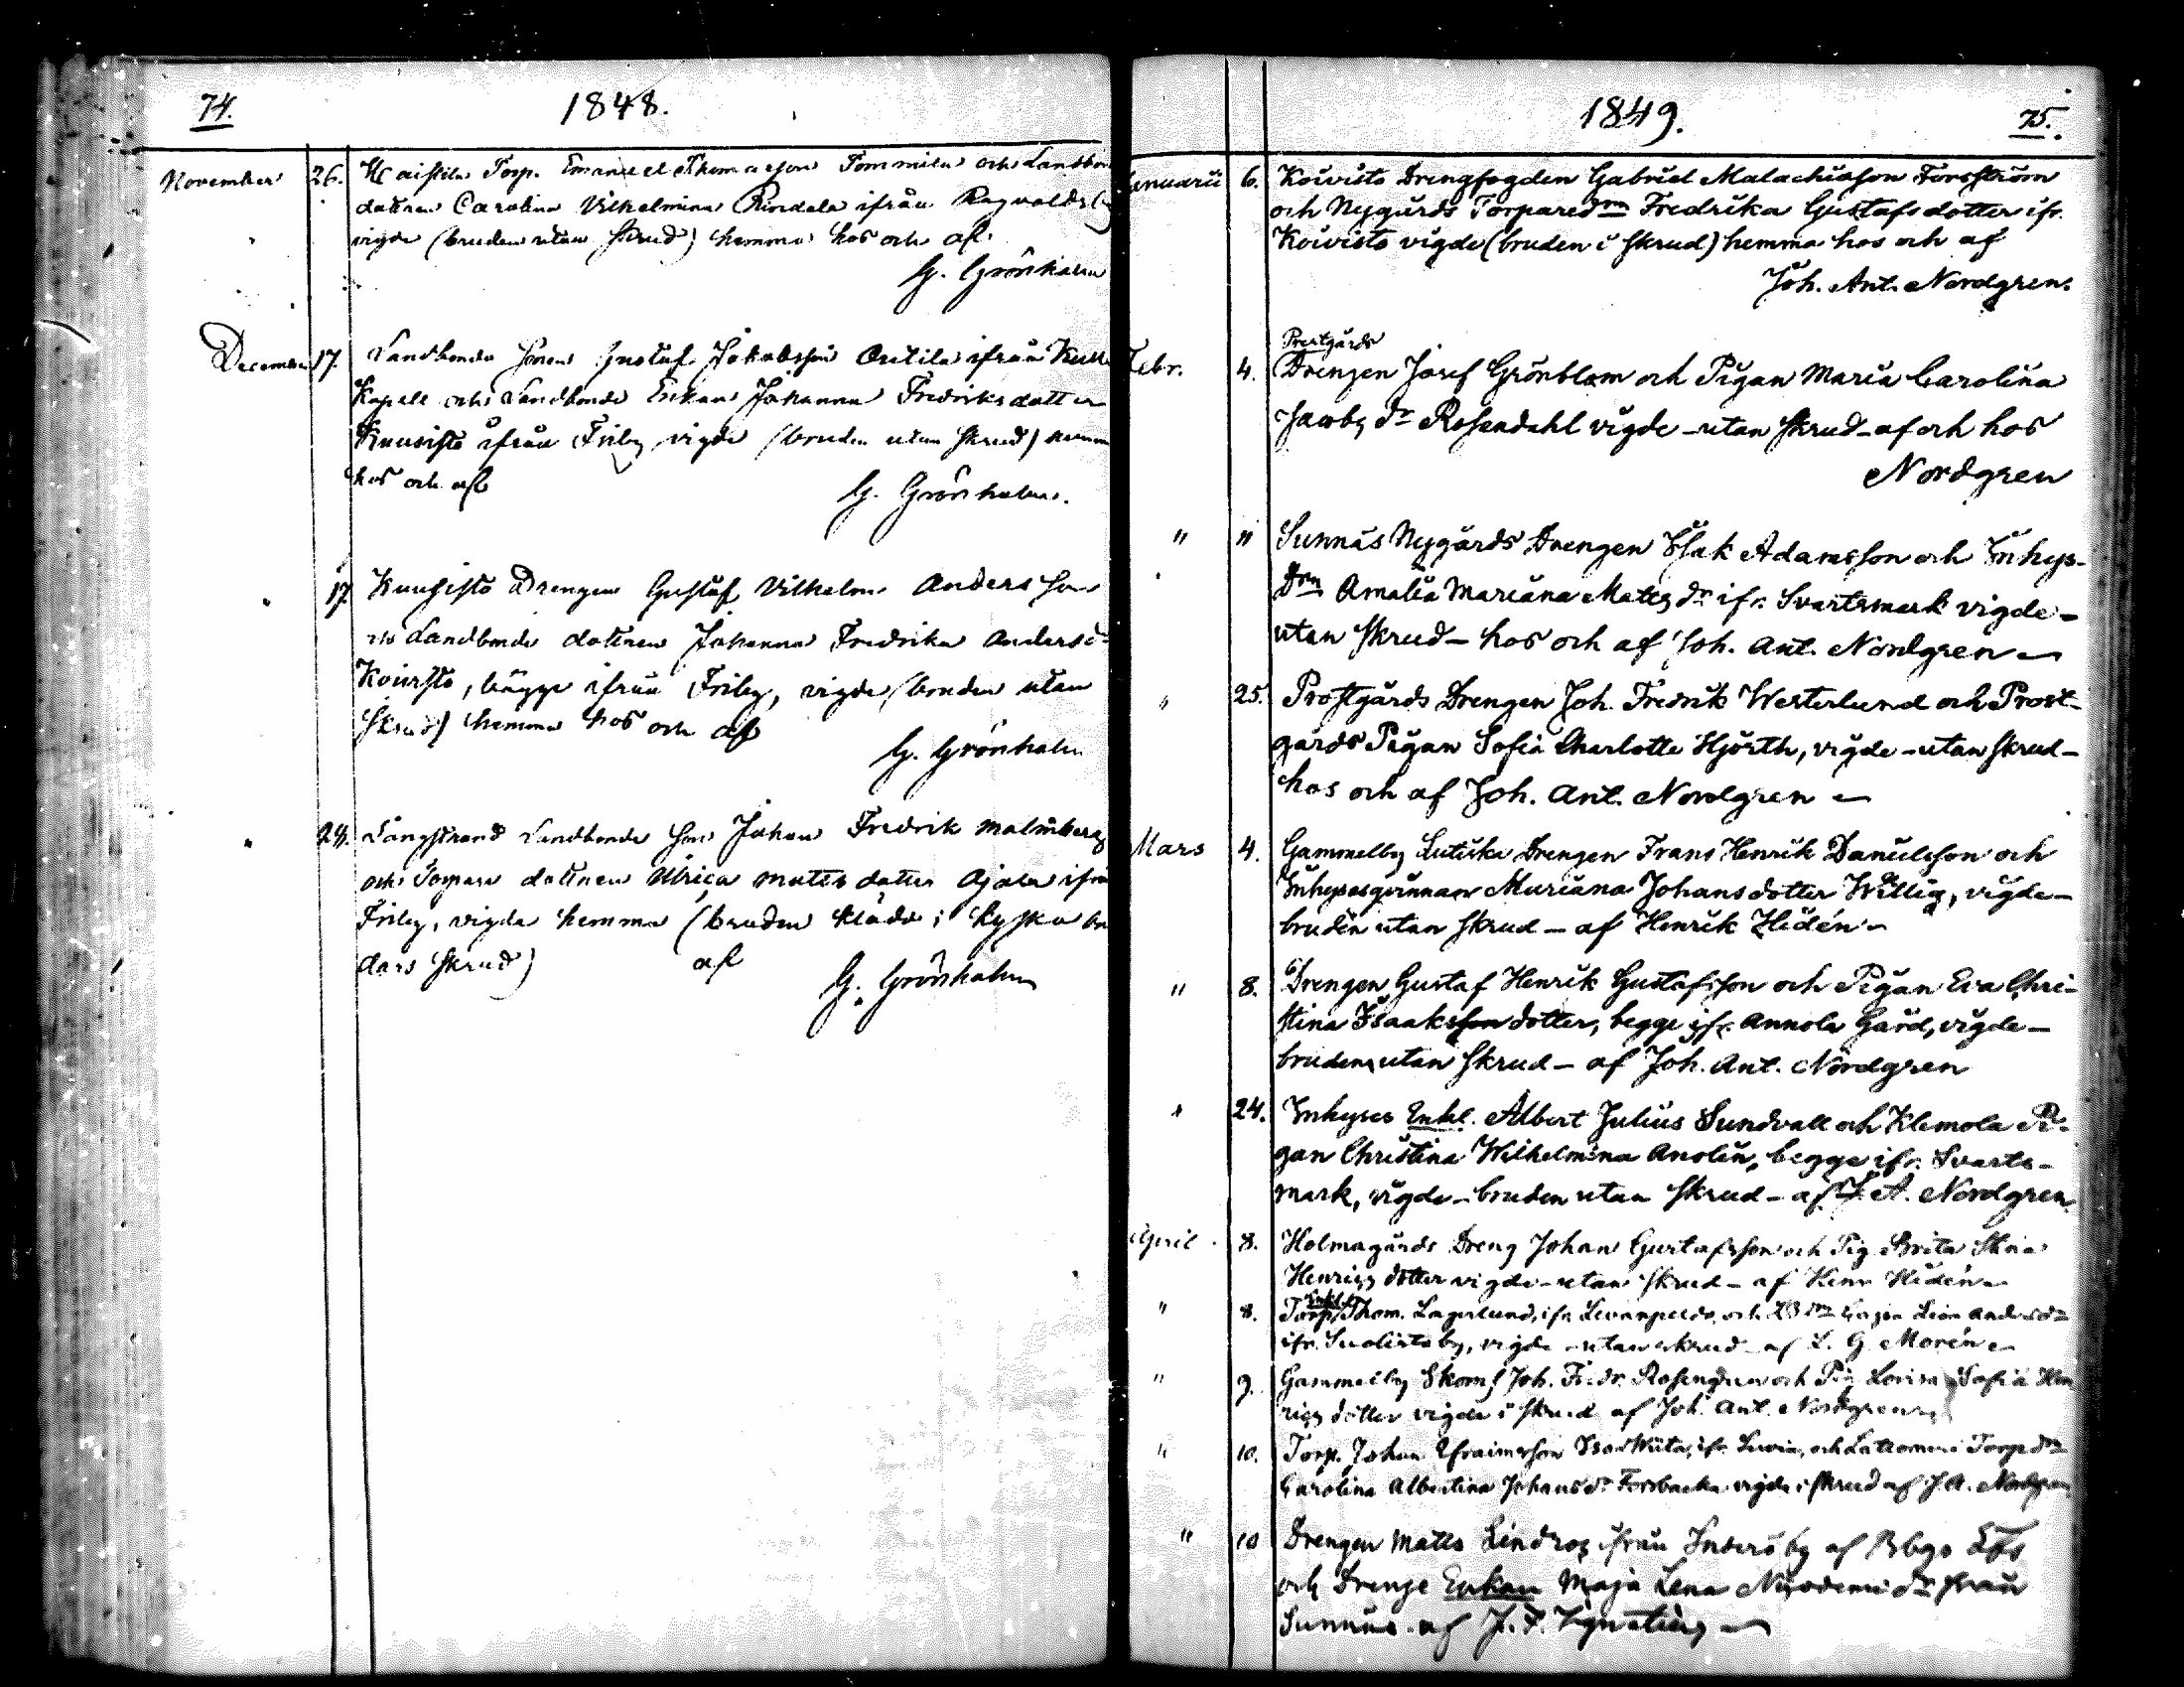 74.
1848.
November 26. Kaistila Torp. Emanuel Thomasson Tommila och Landbon
dottren Carolina Vilhelmina Rindala ifrån Ragvalds
vigde (bruden utan skrud) hemma hos och af
G. Grönholm
December 17. Landbonde Sonen Gustaf Jakobsson Ontila ifrån
Kapell och Landbonde Enkan Johanna Fredriksdotter
Kuusisto ifrån Friby vigde (bruden utan skrud) hemm
hos och af
G. Grönholm.
17. Kuusisto Drengen Gustaf Vilhelm Andersson
Landbonde dottren Johanna Fredrika Andersd.
Koivisto, bägge ifrån Friby, vigde (bruden utan
skrud) hemma hos och af
G. Grönholm
" 24. Långstrand Landbonde Son Johan Fredrik Malmberg
och Torpare dottren Ulrica Matts dotter Ajala ifrån
Friby, vigda hemma (bruden klädd i kyska
dars skrud) af
G. Grönholm
1849.
75.
Januarii 6. Koivisto Drengfogden Gabriel Malachiasson Forsström
och Nygårds Torparedrn Fredrika Gustafsdotter ifr.
Koivisto vigde (bruden i skrud) hemma hos och af
Joh. Ant. Nordgren.
Prostgårds
Febr. 4. Drengen Josef Grönblom och Pigan Maria Carolina
Jacobs dr Rosendahl vigde – utan skrud – af och hos
Nordgren
" 11 Sunnäs Nygårds Drengen Isak Adamsson och Inhys-
drn Amalia Mariana Matts dr ifr. Svartsmark vigde –
utan skrud – hos och af Joh. Ant. Nordgren –
" 25. Prostgårds Drengen Joh. Fredrik Westerlund och Prost-
gårds Pigan Sofia Charlotte Hjorth, vigde – utan skrud –
hos och af Joh. Ant. Nordgren –
Mars 4. Gammelby Lutiska Drengen Frans Henrik Danielsson och
Inhysesqvinnan Mariana Johansdotter Willig, vigde –
bruden utan skrud – af Henrik Hidén –
" 8. Drengen Gustaf Henrik Gustafsson och Pigan Eva Chri-
stina Isaaks dotter, begge ifr. Annola Gård, vigde –
bruden utan skrud – af Joh. Ant. Nordgren
" 24. Inhyses Enkl. Albert Julius Sundvall och Klemola Pi-
gan Christina Wilhelmina Anolin, begge ifr. Svarts-
mark, vigde – bruden utan skrud – af J. A. Nordgren
April 8. Holmagårds Dreng Johan Gustafsson och Pig. Brita Stina
Henrics dotter vigde – utan skrud – af Henr Hidén –
Enkl.
" 8. Torp. Thom. Lagerlund, ifr. och
ifr. by, vigde – utan skrud – af L. G. Morén –
" 9. Gammelby Skom. Joh. Fredr. Rosengren och Pig. Lovisa Sofia Hen
rics dotter vigde i skrud af Joh. Ant. Nordgren
" 10. Torp. Johan Efraimsson ifr. och Torp drn
Carolina Albertina Johans dr Forsbacka vigde i skrud af J. A. Nordgren
" 10 Drengen Matts Lindros ifrån Indersby af Borgo
och Drenge Enkan Maja Lena dr från
Sunnäs af J. F. Ignatius –